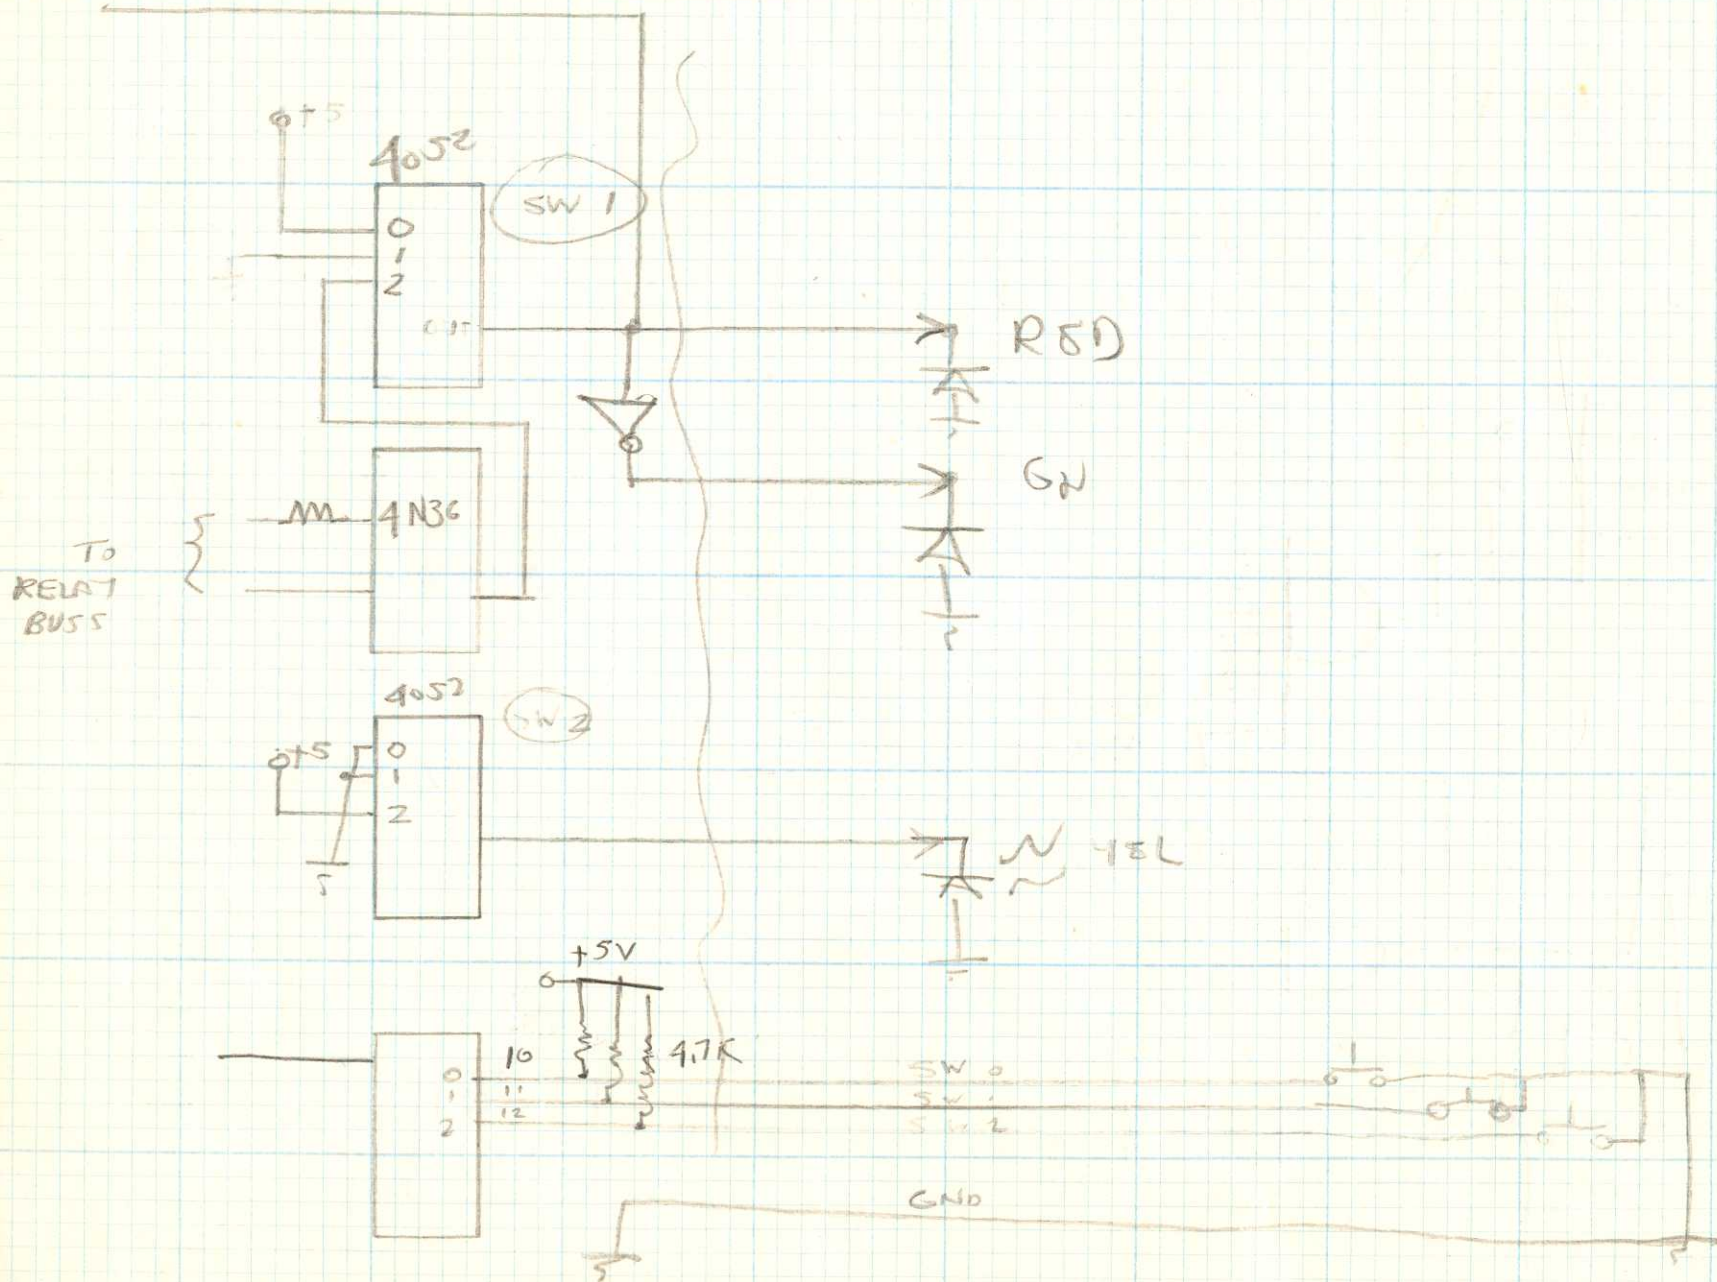 +5
4052
SW 1
0
1
2
RED
GN
4N36
TO
RELAY
BUSS
4052
SW 2
+5
0
1
2
YEL
+5V
4.7K
10
0
11
1
12
2
SW 0
SW 1
SW 2
GND